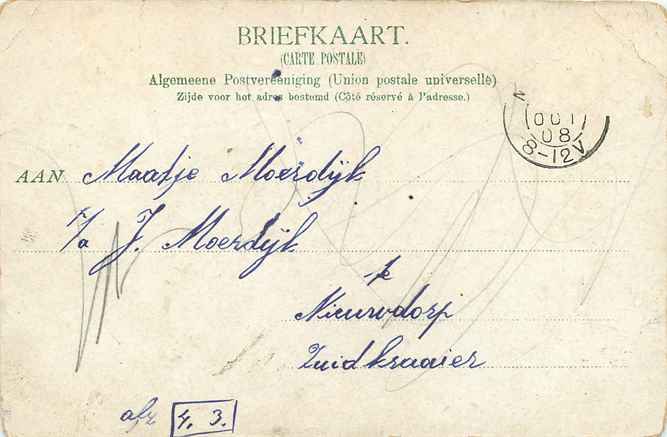 BRIEFKAART.
(CARTE POSTALE)
Algemeene Postvereeniging (Union postale universelle)
Zijde voor het adres bestemd (Côté réservé à l'adresse.)
OCT
08
8-12V
AAN Maatje Moerdijk
p/a J. Moerdijk
te
Nieuwdorp
Zuidkraaier
afz 4. 3.